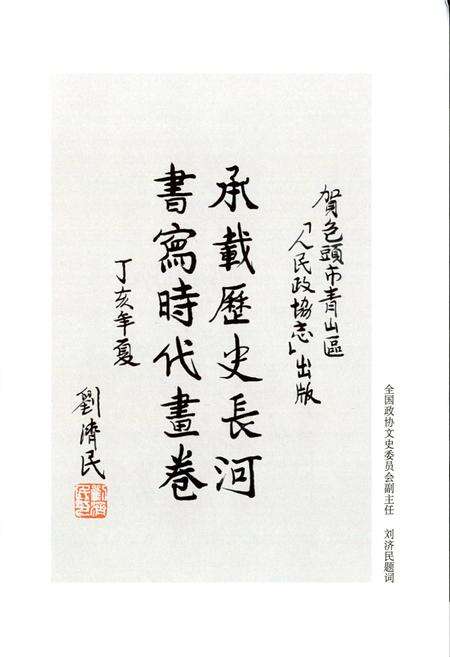 賀包頭市青山區
「人民政協志」出版
承載歷史長河
書寫時代畫卷
丁亥年夏
劉濟民
全国政协文史委员会副主任　刘济民题词